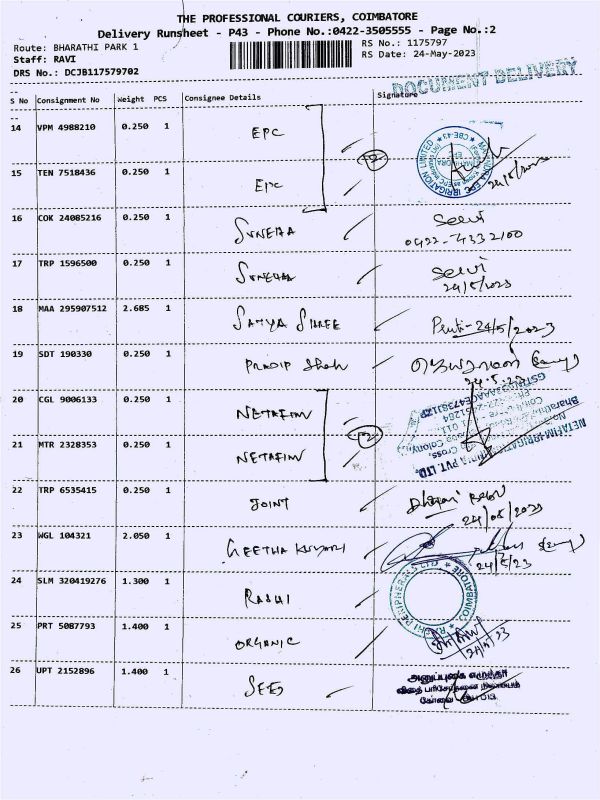 THE PROFESSIONAL COURIERS, COIMBATORE
Delivery Runsheet - P43 - Phone No.:0422-3505555 - Page No.:2
Route: BHARATHI PARK 1 RS No.: 1175797
Staff: RAVI RS Date: 24-May-2023
DRS No.: DCJB117579702
DOCUMENT DELIVERY
S No Consignment No Weight PCS Consignee Details Signature
14 VPM 4988210 0.250 1 EPC
15 TEN 7518436 0.250 1 EPC
24/5/2023
16 COK 24085216 0.250 1 SUNEHA Selvi
0422-4332100
17 TRP 1596500 0.250 1 SUNEHA Selvi
24/5/2023
18 MAA 295907512 2.685 1 SATYA SHREE 24/5/2023
19 SDT 190330 0.250 1 PRADIP Shah
24.5.23
20 CGL 9006133 0.250 1 NETAFIM
21 MTR 2328353 0.250 1 NETAFIM
22 TRP 6535415 0.250 1 JOINT
24/05/2023
23 WGL 104321 2.050 1 GEETHA KUMARI
24/5/23
24 SLM 320419276 1.300 1 RASHI
RASHI PERIPHERALS LTD COIMBATORE
25 PRT 5087793 1.400 1 ORGANIC
24/5/23
26 UPT 2152896 1.400 1 SEED
விதை பரிசோதனை நிலையம்